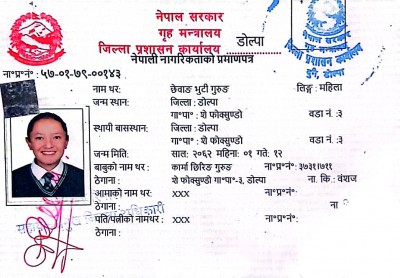 नेपाल सरकार
गृह मन्त्रालय
जिल्ला प्रशासन कार्यालय डोल्पा
नेपाली नागरिकताको प्रमाणपत्र
ना॰प्र॰नं॰ : ५७-०१-७९-००१४३
नाम थर: छेवाङ भुटी गुरुङ लिङ्ग: महिला
जन्म स्थान: जिल्ला : डोल्पा
गा॰पा : शे फोक्सुण्डो वडा नं. :३
स्थायी बासस्थान: जिल्ला : डोल्पा
गा॰पा : शे फोक्सुण्डो वडा नं. :३
जन्म मिति: साल: २०६२ महिना: ०१ गते: १२
बाबुको नाम थर : कार्मा छिरिङ गुरुङ ना॰प्र॰नं॰: ३७३१।७११
ठेगाना: शे फोक्सुण्डो गा॰पा॰-३, डोल्पा ना. कि.: वंशज
आमाको नाम थर: xxx ना॰प्र॰नं॰:
ठेगाना : ना
पति/पत्नीको नामथर: xxx ना॰प्र॰नं॰:
ठेगाना : xxx